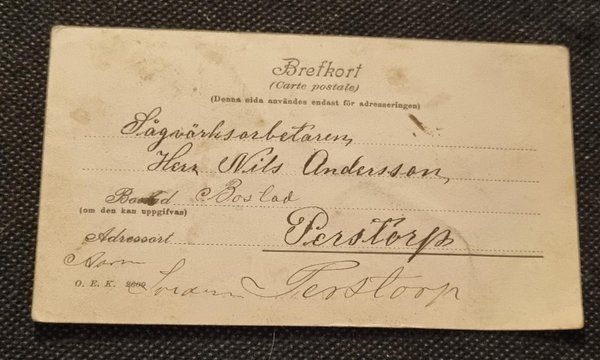 Brefkort
(Carte postale)
(Denna sida användes endast för adresseringen)
Sågvärksarbetaren,
Herr Nils Andersson,
Bostad Bostad
(om den kan uppgifvas)
Adressort Perstorp
Norr
O. E. K. Perstorp